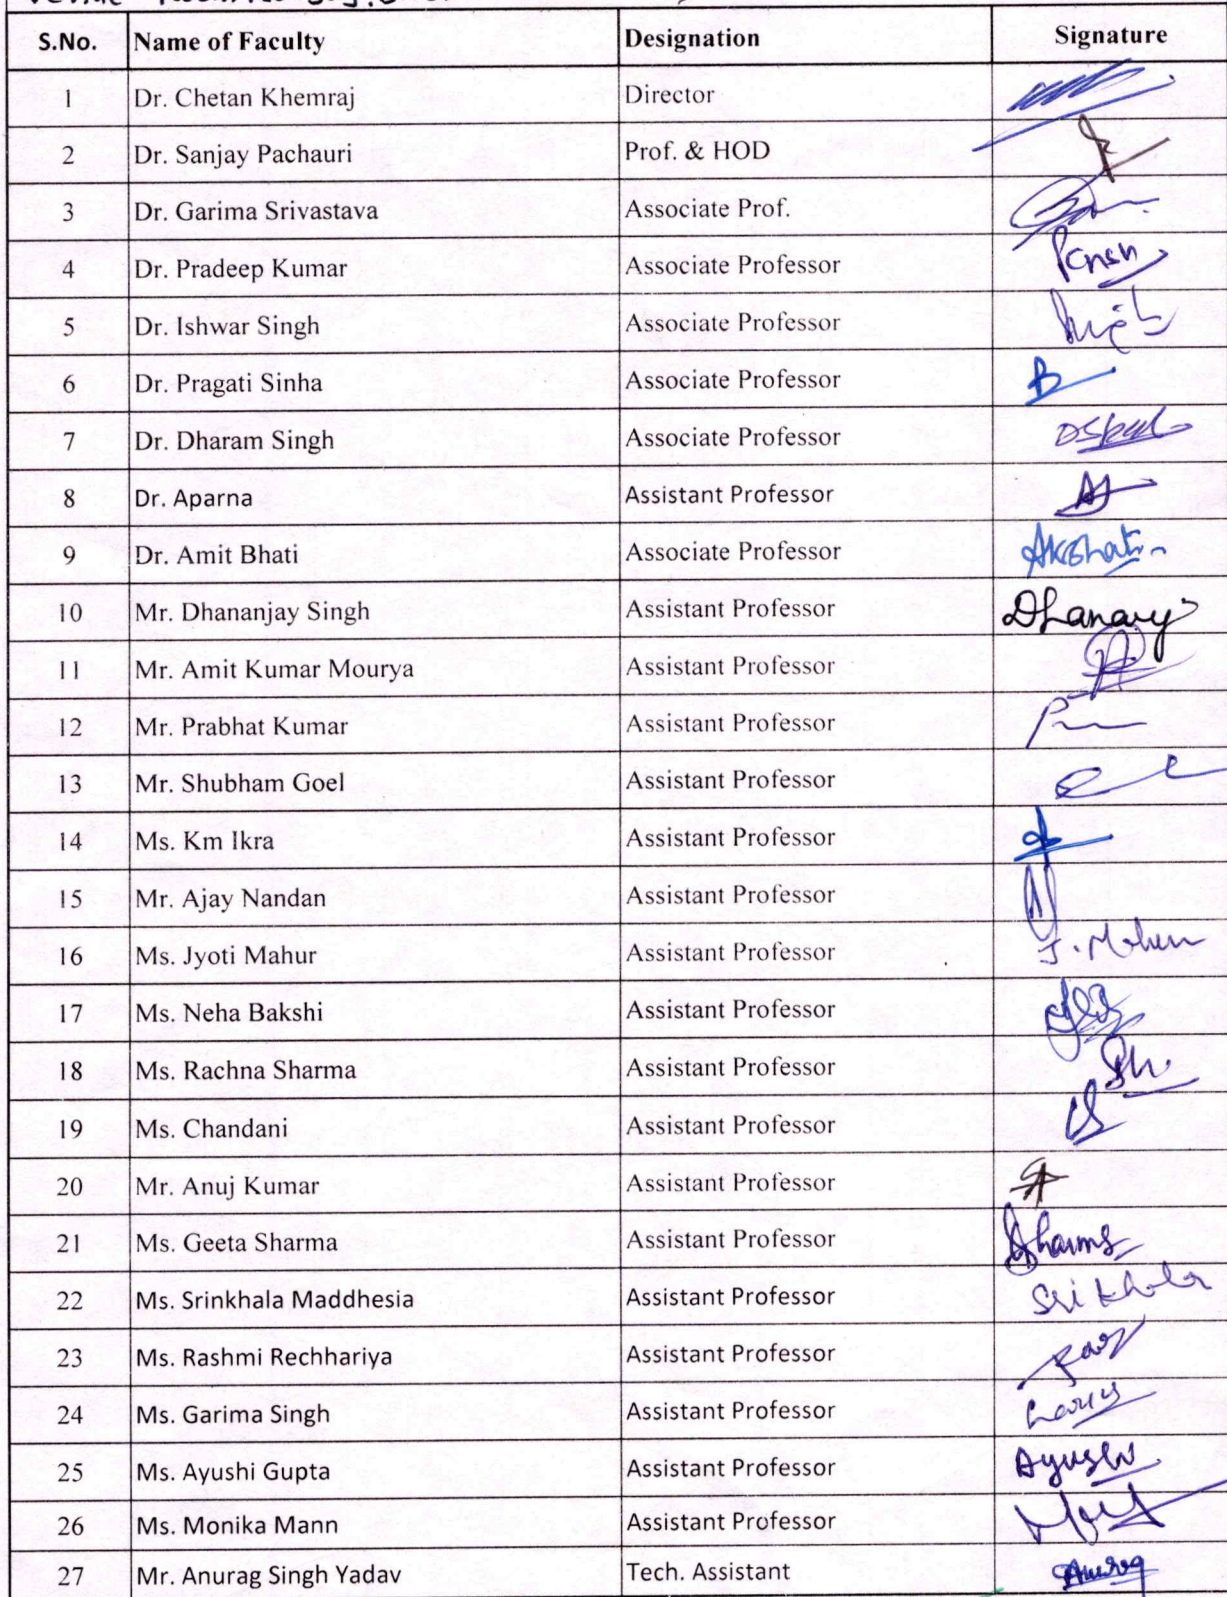 S.No. Name of Faculty Designation Signature
1 Dr. Chetan Khemraj Director
2 Dr. Sanjay Pachauri Prof. & HOD
3 Dr. Garima Srivastava Associate Prof.
4 Dr. Pradeep Kumar Associate Professor
5 Dr. Ishwar Singh Associate Professor
6 Dr. Pragati Sinha Associate Professor
7 Dr. Dharam Singh Associate Professor
8 Dr. Aparna Assistant Professor
9 Dr. Amit Bhati Associate Professor
10 Mr. Dhananjay Singh Assistant Professor
11 Mr. Amit Kumar Mourya Assistant Professor
12 Mr. Prabhat Kumar Assistant Professor
13 Mr. Shubham Goel Assistant Professor
14 Ms. Km Ikra Assistant Professor
15 Mr. Ajay Nandan Assistant Professor
16 Ms. Jyoti Mahur Assistant Professor
17 Ms. Neha Bakshi Assistant Professor
18 Ms. Rachna Sharma Assistant Professor
19 Ms. Chandani Assistant Professor
20 Mr. Anuj Kumar Assistant Professor
21 Ms. Geeta Sharma Assistant Professor
22 Ms. Srinkhala Maddhesia Assistant Professor
23 Ms. Rashmi Rechhariya Assistant Professor
24 Ms. Garima Singh Assistant Professor
25 Ms. Ayushi Gupta Assistant Professor Ayushi
26 Ms. Monika Mann Assistant Professor
27 Mr. Anurag Singh Yadav Tech. Assistant Anurag